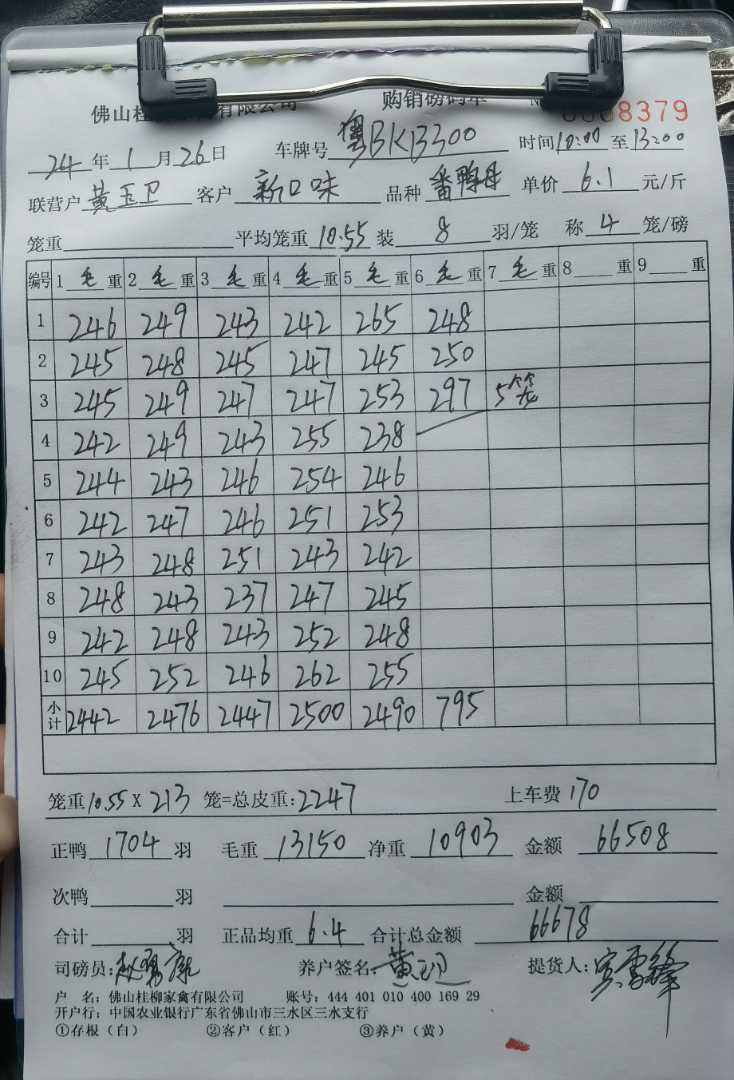 佛山桂 有限公司 购销磅码单 № 0008379
24 年 1 月 26 日 车牌号 粤BKB300 时间 10:00 至 13:00
联营户 黄玉卫 客户 新口味 品种 番鸭母 单价 6.1 元/斤
笼重 平均笼重 10.55 装 8 羽/笼 称 4 笼/磅
编号 1 毛 重 2 毛 重 3 毛 重 4 毛 重 5 毛 重 6 毛 重 7 毛 重 8 重 9 重
1 246 249 243 242 265 248
2 245 248 245 247 245 250
3 245 249 247 247 253 297 5笼
4 242 249 243 255 238
5 244 243 246 254 246
6 242 247 246 251 253
7 243 248 251 243 242
8 248 243 237 247 245
9 242 248 243 252 248
10 245 252 246 262 255
小计 2442 2476 2447 2500 2490 795
笼重 10.55 X 213 笼=总皮重: 2247 上车费 170
正鸭 1704 羽 毛重 13150 净重 10903 金额 66508
次鸭 羽 金额
合计 羽 正品均重 6.4 合计总金额 66678
司磅员: 养户签名: 黄 提货人:
户 名: 佛山桂柳家禽有限公司 账号: 444 401 010 400 169 29
开户行: 中国农业银行广东省佛山市三水区三水支行
①存根（白） ②客户（红） ③养户（黄）